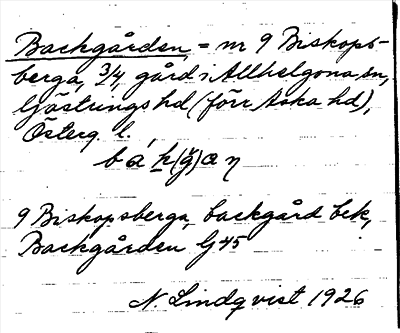 Backgården = nr 9 Biskops-
berga, 3/4, gård i Allhelgona sn,
Gästrings hd (förr Aska hd),
Österg. l.
9 Biskopsberga, backgård bek,
Backgården G 45
N Lindqvist 1926